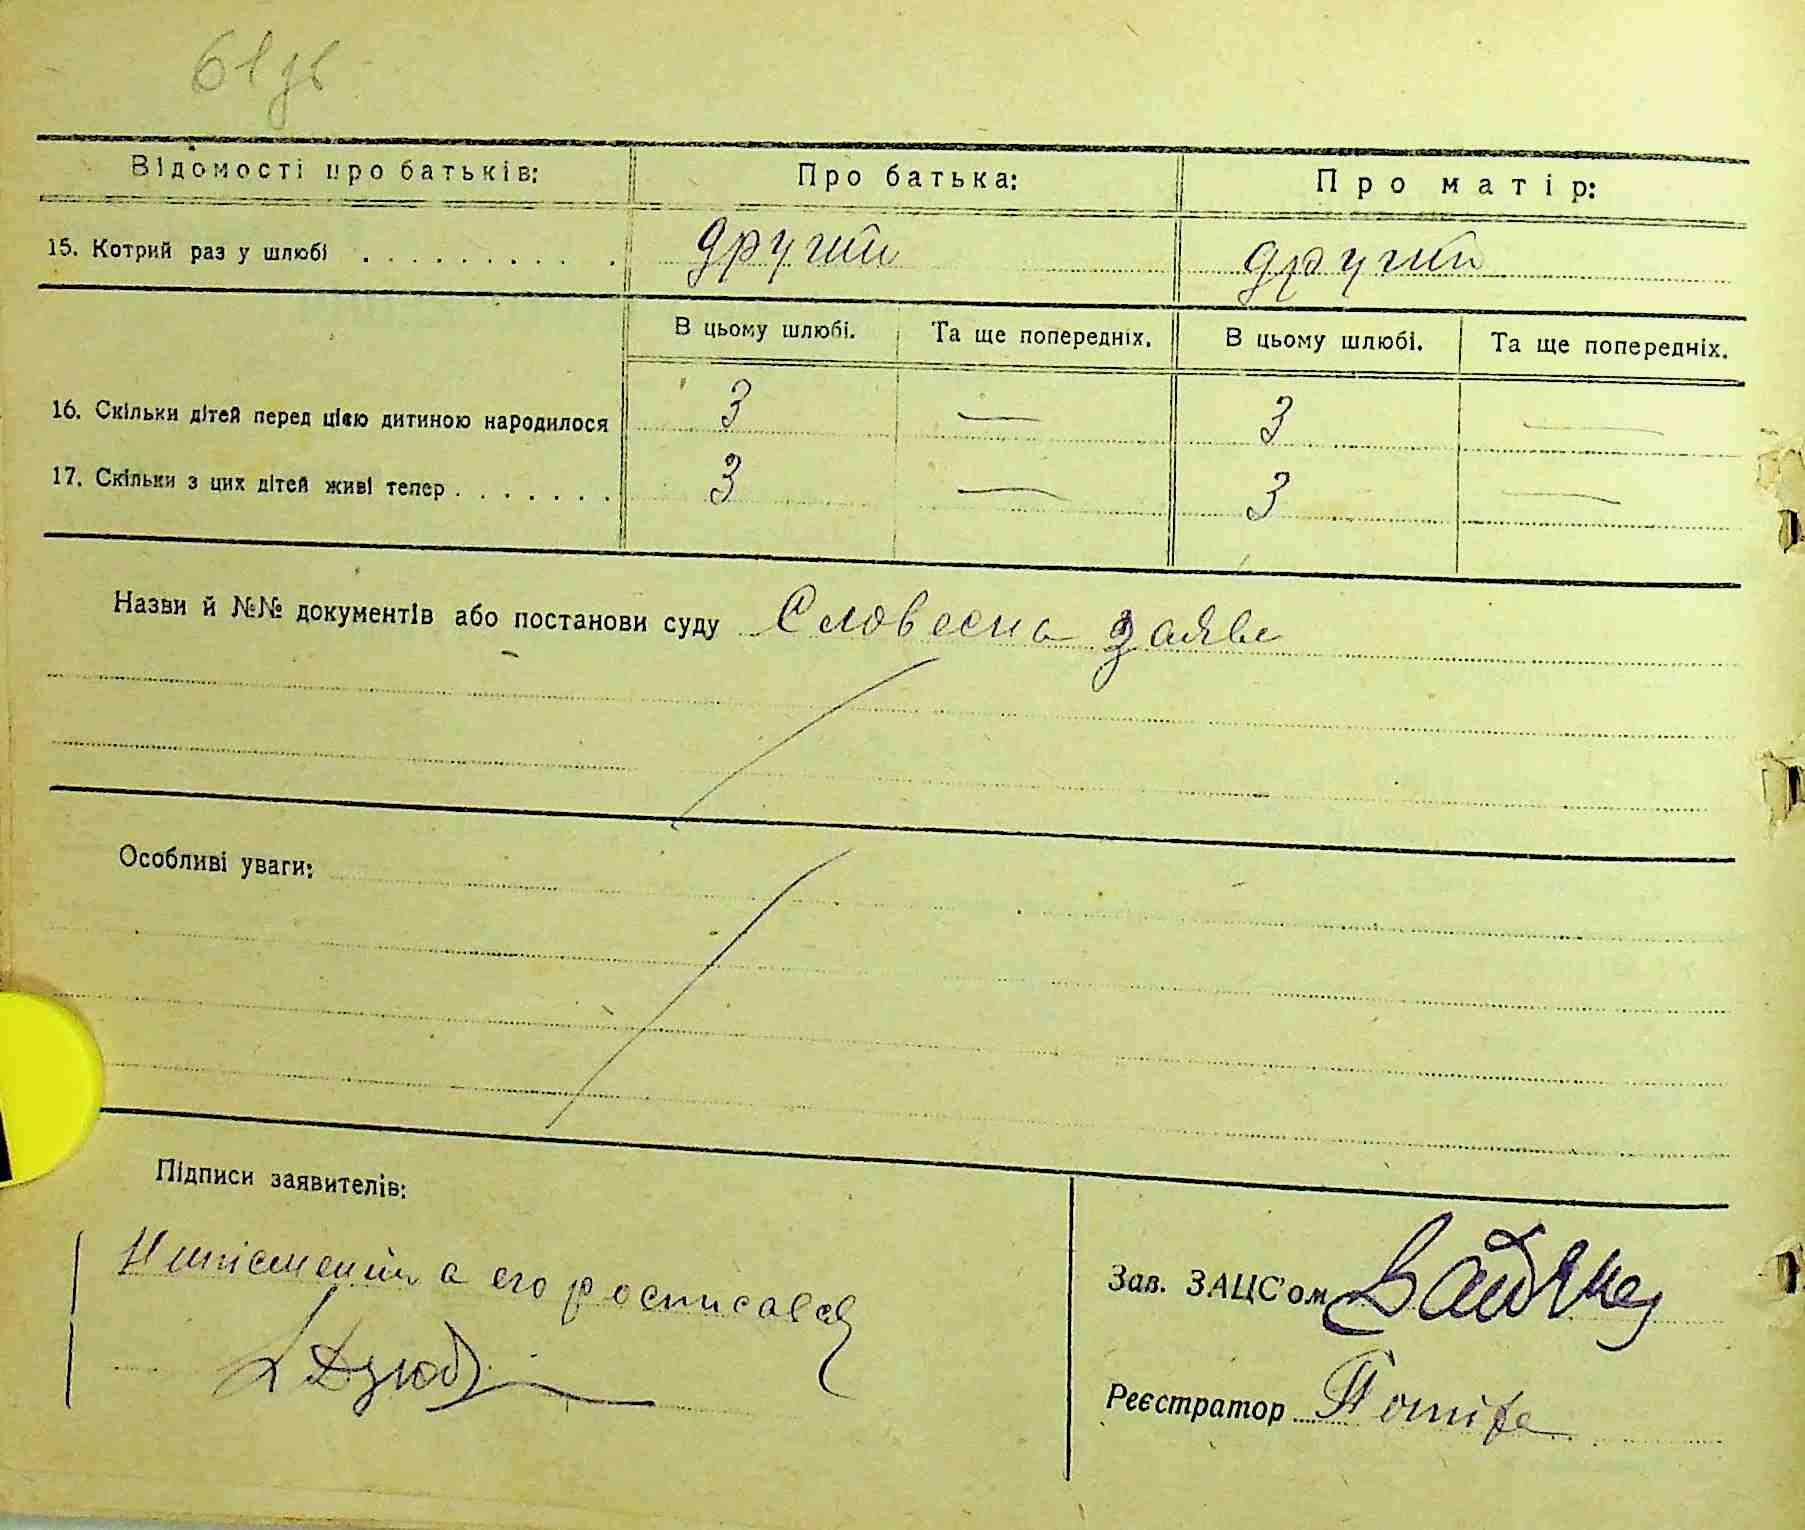 Відомості про батьків: Про батька: Про матір:
15. Котрий раз у шлюбі . . . . . . . . . . другий другий
В цьому шлюбі. Та ще попередніх. В цьому шлюбі. Та ще попередніх.
16. Скільки дітей перед цією дитиною народилося 3 — 3 —
17. Скільки з цих дітей живі тепер . . . . . . . 3 — 3 —
Назви й №№ документів або постанови суду Словесна заява
Особливі уваги:
Підписи заявителів:
а его росписався
Дзюб
Зав. ЗАЦС'ом
Реєстратор